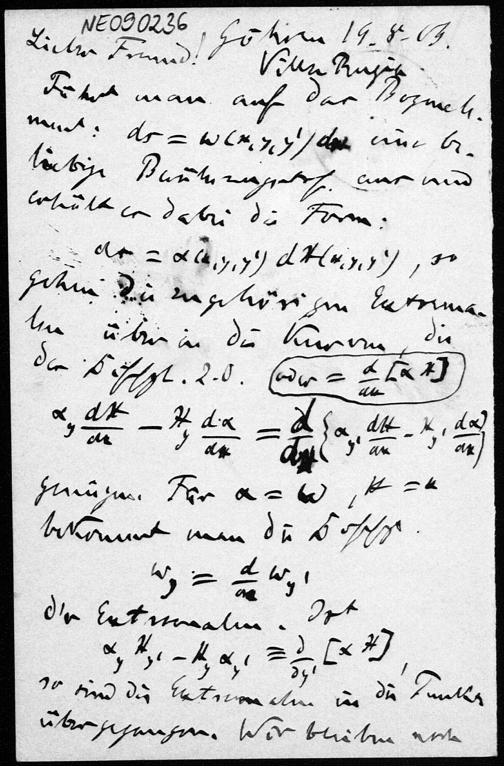 NE090236
Lieber Freund! Göhren 19.8.03.
Villa
Führt man auf das Bogenele-
ment: ds = w(x,y,y')dx eine be-
liebige Berührungstrf. aus und
erhält er dabei die Form:
ds = α(x,y,y') dH(x,y,y'), so
gehen die zugehörigen Extrema-
len über in die Kurven, die
der Diffgl. 2.O. = d/dx [α H]
α_y dH/dx − H_y dα/dx = d/dx {α_y' dH/dx − H_y' dα/dx}
genügen. Für α = w, H = x
bekommt man die Diffgl.
w_y = d/dx w_y'
der Extremalen. Ist
α_y H_y' − H_y α_y' ≡ ∂/∂y' [α H],
so sind die Extremalen in die
übergegangen. Wir bleiben noch